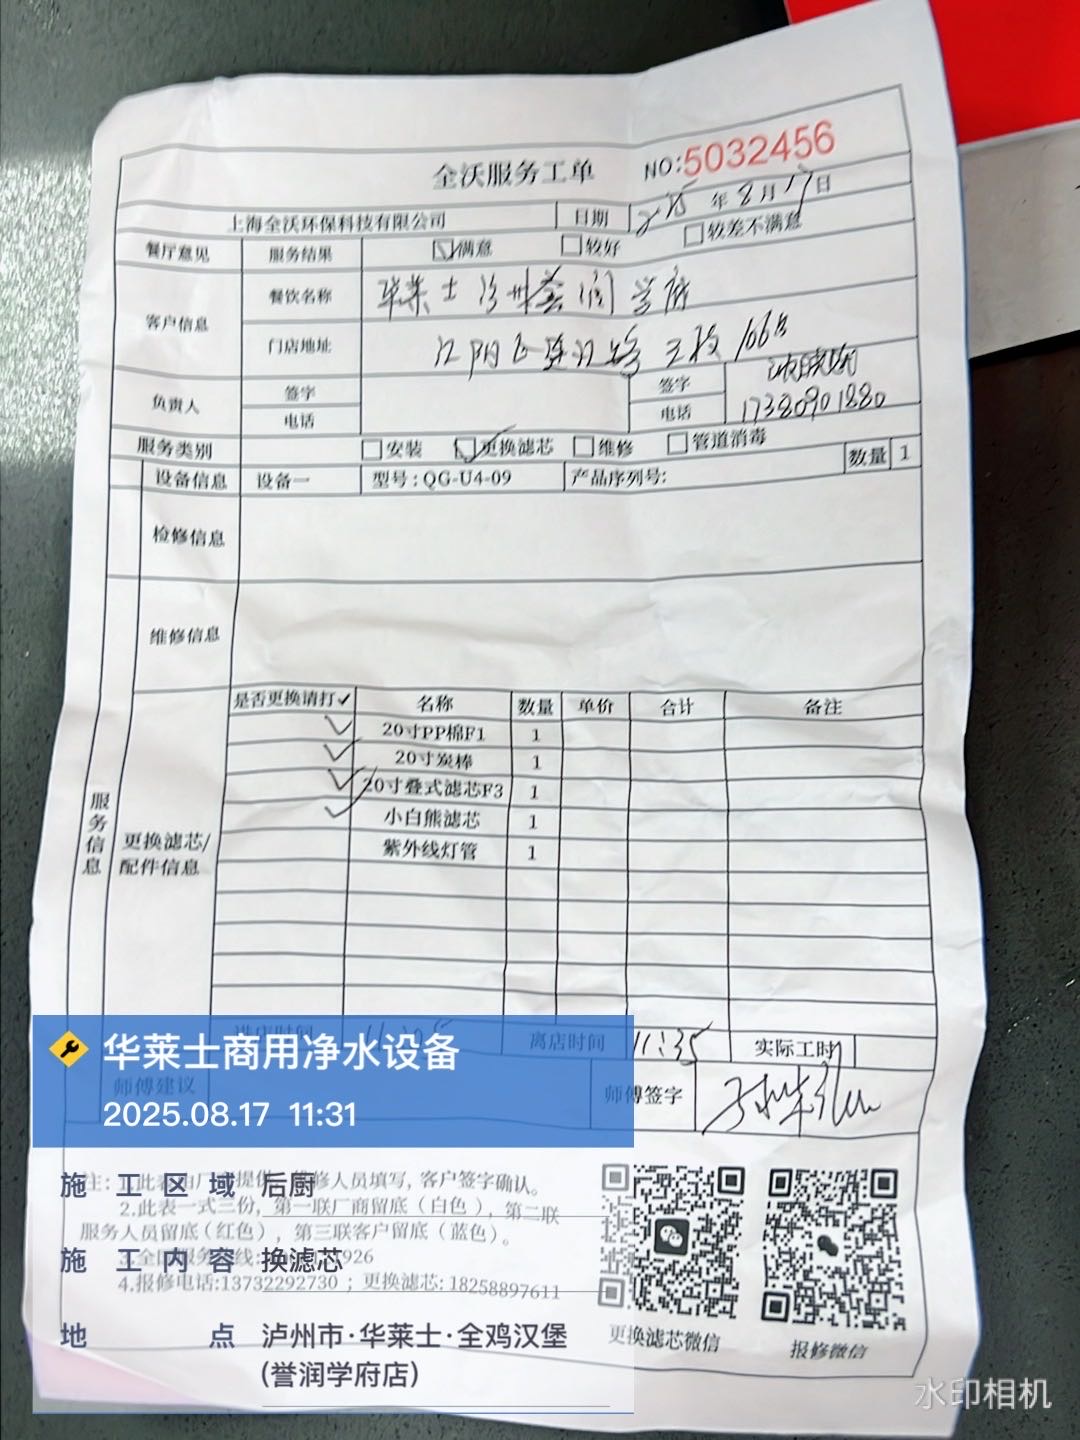 全沃服务工单 NO:5032456
上海全沃环保科技有限公司 日期 25年8月17日
餐厅意见 服务结果 ☑满意 □较好 □较差不满意
客户信息 餐饮名称 华莱士泸州誉润学府
门店地址 江阳区连江路三段166号
负责人 签字 签字
电话 电话 17380901880
服务类别 □安装 ☑更换滤芯 □维修 □管道消毒
设备信息 设备一 型号:QG-U4-09 产品序列号: 数量 1
检修信息
维修信息
服务信息
更换滤芯/
配件信息
是否更换请打✓ 名称 数量 单价 合计 备注
✓ 20寸PP棉F1 1
✓ 20寸炭棒 1
✓ 20寸叠式滤芯F3 1
✓ 小白熊滤芯 1
紫外线灯管 1
进店时间 11:05 离店时间 11:35 实际工时
师傅建议 师傅签字
华莱士商用净水设备
2025.08.17 11:31
注: 1.此表由厂商提供, 维修人员填写, 客户签字确认。
2.此表一式三份, 第一联厂商留底(白色), 第二联
服务人员留底(红色), 第三联客户留底(蓝色)。
3.全国服务热线: 926
4.报修电话:13732292730 ; 更换滤芯: 18258897611
更换滤芯微信 报修微信
施工区域 后厨
施工内容 换滤芯
地点 泸州市·华莱士·全鸡汉堡
(誉润学府店)
水印相机